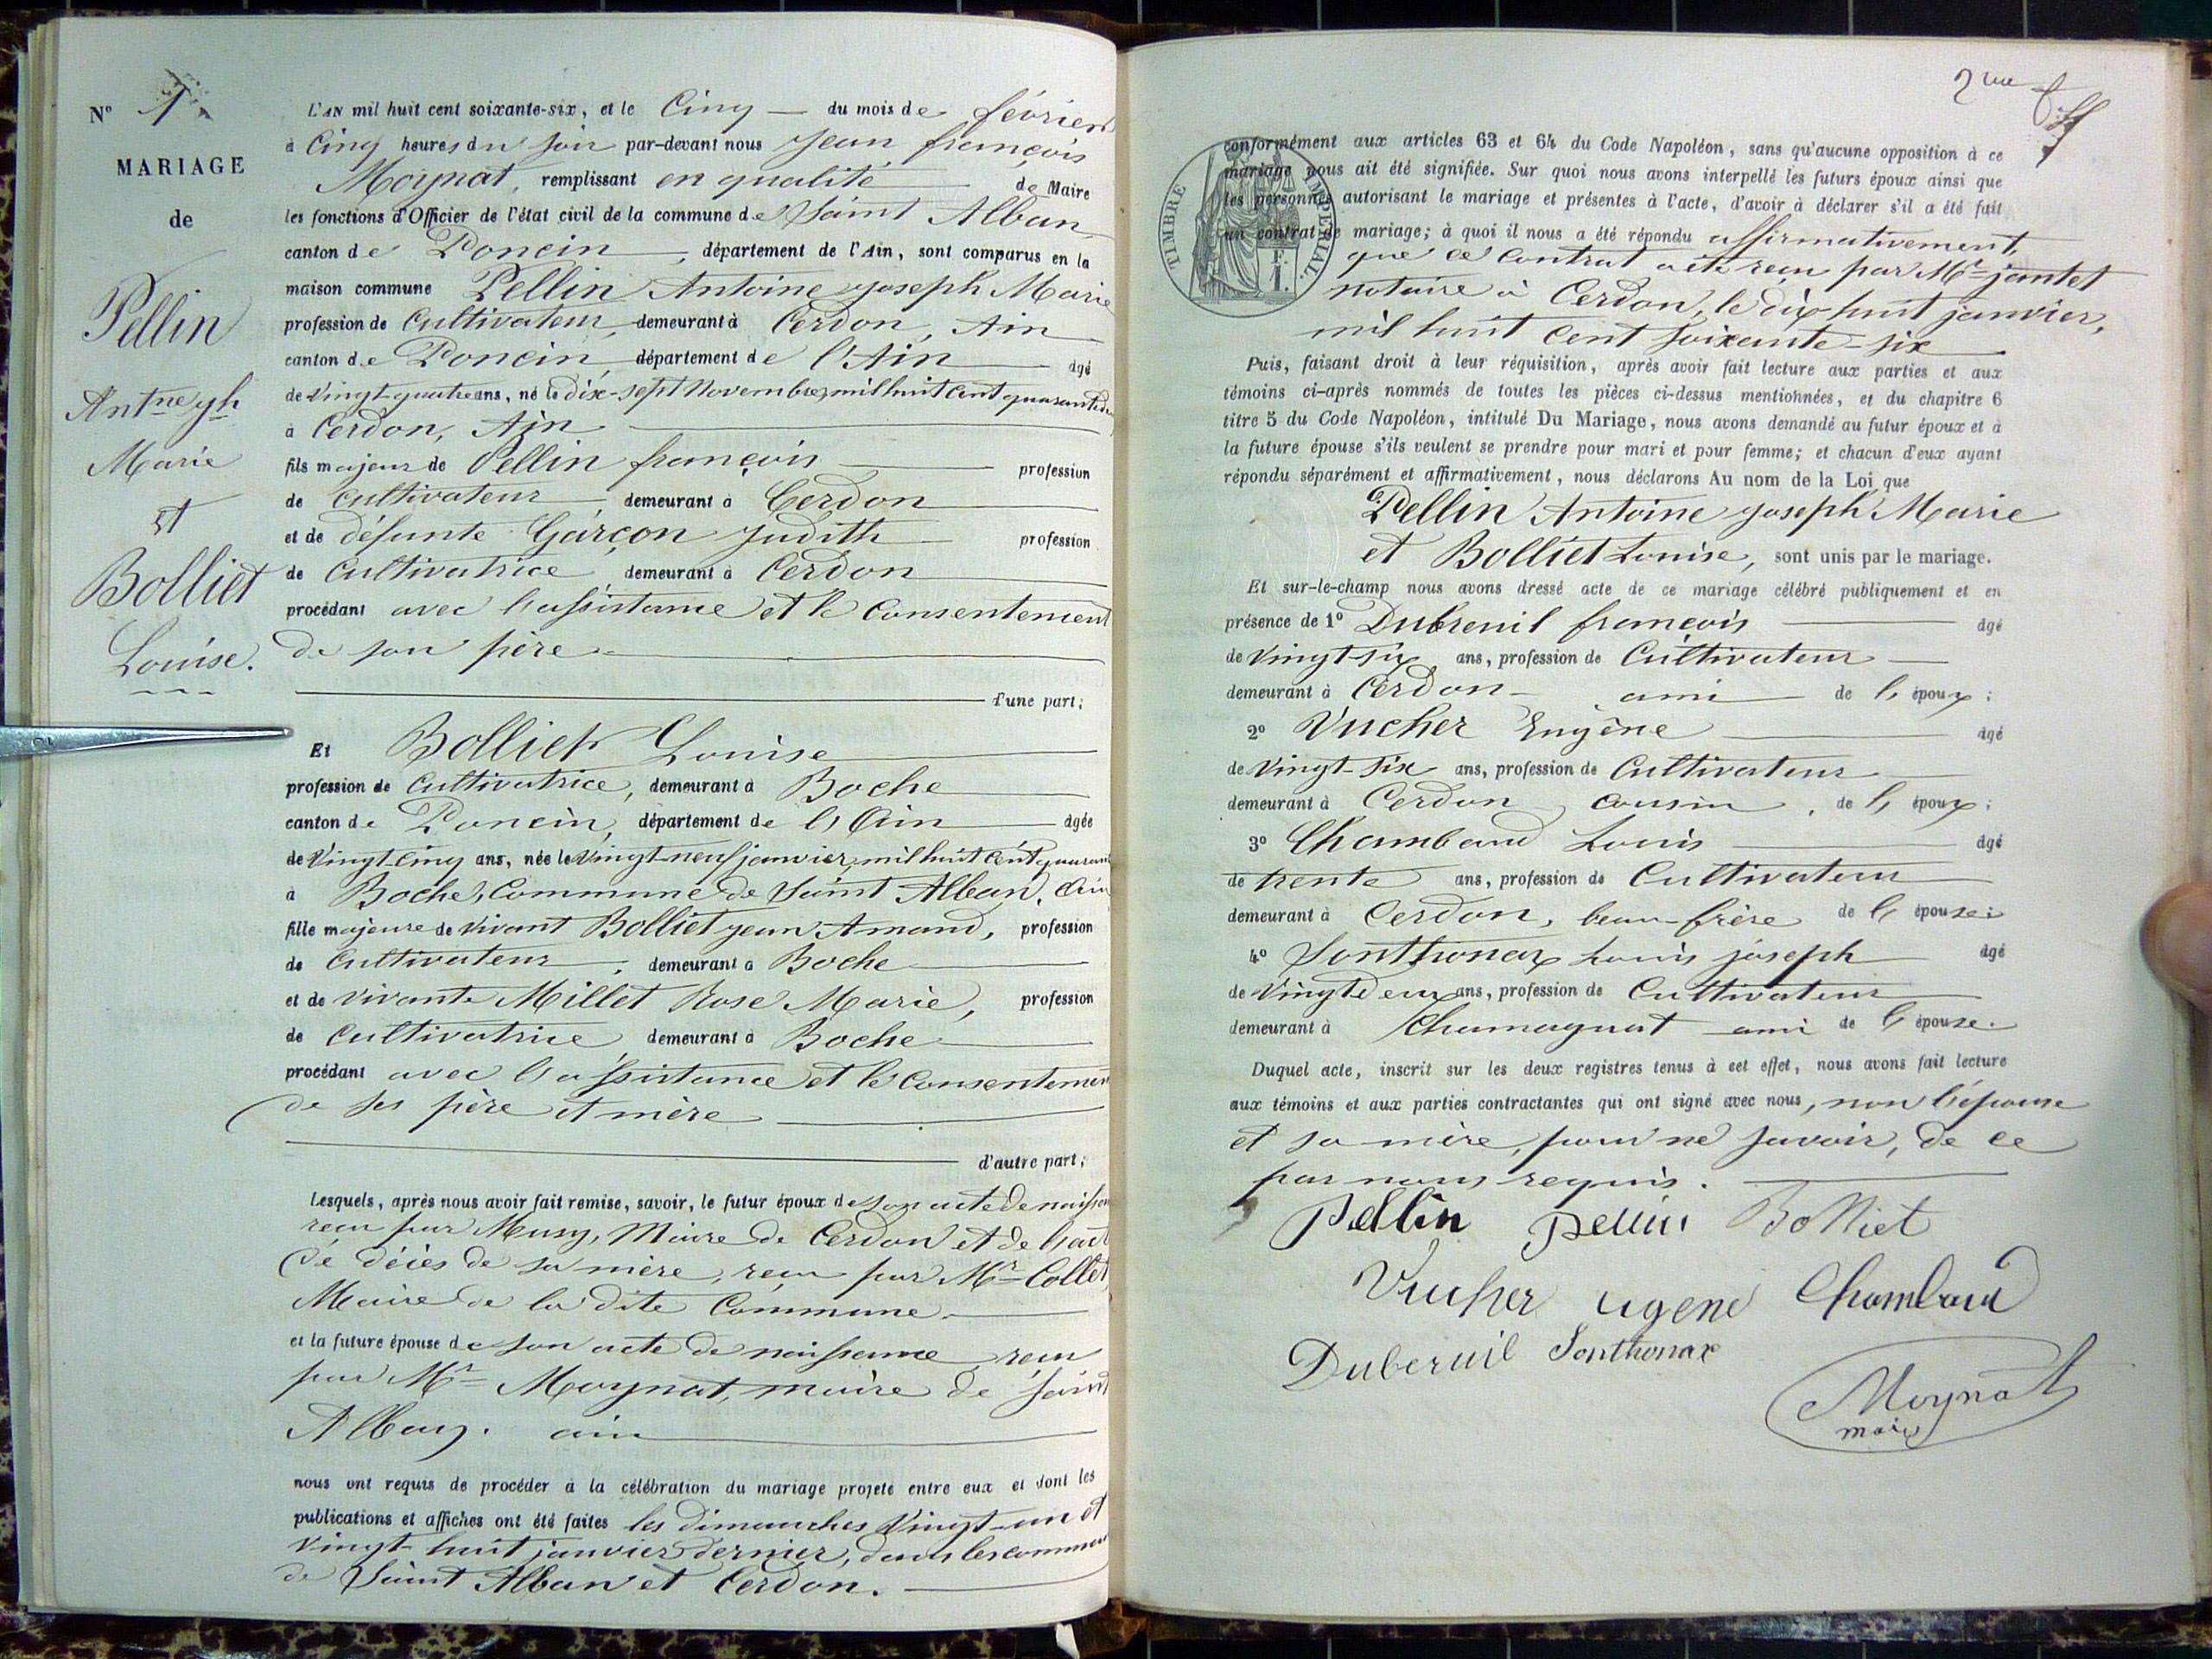 N° 1
MARIAGE
de
Pellin
Antne jph
Marie
et
Bolliet
Louise.
L'AN mil huit cent soixante-six, et le Cinq — du mois de février
à Cinq heures du soir par-devant nous Jean françois
Moynat, remplissant en qualité de Maire
les fonctions d'Officier de l'état civil de la commune de Saint Alban
canton de Poncin, département de l'Ain, sont comparus en la
maison commune Pellin Antoine joseph Marie
profession de Cultivateur, demeurant à Cerdon, Ain
canton de Poncin, département de l'Ain âgé
de vingt-quatre ans, né le dix-sept Novembre mil huit cent quarante
à Cerdon, Ain
fils majeur de Pellin françois profession
de cultivateur demeurant à Cerdon
et de défunte Garçon Judith profession
de Cultivatrice demeurant à Cerdon
procédant avec l'assistance et le Consentement
de son père
d'une part;
Et Bolliet Louise
profession de Cultivatrice, demeurant à Boche
canton de Poncin, département de l'Ain âgée
de Vingt-Cinq ans, née le vingt-neuf janvier, mil huit Cent quarant
à Boche, Commune de Saint Alban, Ain
fille majeure de vivant Bolliet jean Amand, profession
de Cultivateur, demeurant à Boche
et de vivante Millet Rose Marie, profession
de Cultivatrice demeurant à Boche
procédant avec l'assistance et le Consentemen
de ses père et mère
d'autre part;
Lesquels, après nous avoir fait remise, savoir, le futur époux de son acte de naissan
reçu par Musy, Maire de Cerdon et de l'act
de décès de sa mère, reçu par Mr Collet,
Maire de la dite Commune.
et la future épouse de son acte de naissance, reçu
par Mr Moynat, maire de saint
Alban. ain
nous ont requis de procéder à la célébration du mariage projeté entre eux et dont les
publications et affiches ont été faites les dimanches Vingt-un et
Vingt-huit janvier dernier, dans les commun
de Saint Alban et Cerdon.
2me f
TIMBRE IMPERIAL.
F.
1.
conformément aux articles 63 et 64 du Code Napoléon, sans qu'aucune opposition à ce
mariage nous ait été signifiée. Sur quoi nous avons interpellé les futurs époux ainsi que
les personnes autorisant le mariage et présentes à l'acte, d'avoir à déclarer s'il a été fait
un contrat de mariage; à quoi il nous a été répondu affirmativement,
que ce Contrat a été reçu par Mr jantet
notaire à Cerdon, le dix-huit janvier,
mil huit cent soixante-six
Puis, faisant droit à leur réquisition, après avoir fait lecture aux parties et aux
témoins ci-après nommés de toutes les pièces ci-dessus mentionnées, et du chapitre 6
titre 5 du Code Napoléon, intitulé Du Mariage, nous avons demandé au futur époux et à
la future épouse s'ils veulent se prendre pour mari et pour femme; et chacun d'eux ayant
répondu séparément et affirmativement, nous déclarons Au nom de la Loi que
Pellin Antoine joseph Marie
et Bolliet Louise, sont unis par le mariage.
Et sur-le-champ nous avons dressé acte de ce mariage célébré publiquement et en
présence de 1° Dubreuil françois âgé
de vingt-six ans, profession de Cultivateur
demeurant à Cerdon ami de l'époux;
2° Vucher Eugène âgé
de Vingt-six ans, profession de Cultivateur
demeurant à Cerdon, cousin, de l'époux;
3° Chambaud Louis âgé
de trente ans, profession de Cultivateur
demeurant à Cerdon, beau-frère de l'épouse;
4° Sonthonax Louis joseph âgé
de Vingt deux ans, profession de Cultivateur
demeurant à Chamagnat ami de l'épouse.
Duquel acte, inscrit sur les deux registres tenus à cet effet, nous avons fait lecture
aux témoins et aux parties contractantes qui ont signé avec nous, non l'épouse
et sa mère, pour ne savoir, de ce
par nous requis.
Pellin Pellin Bolliet
Vucher ugene Chambaud
Duberuil Sonthonax
Moynat
maire